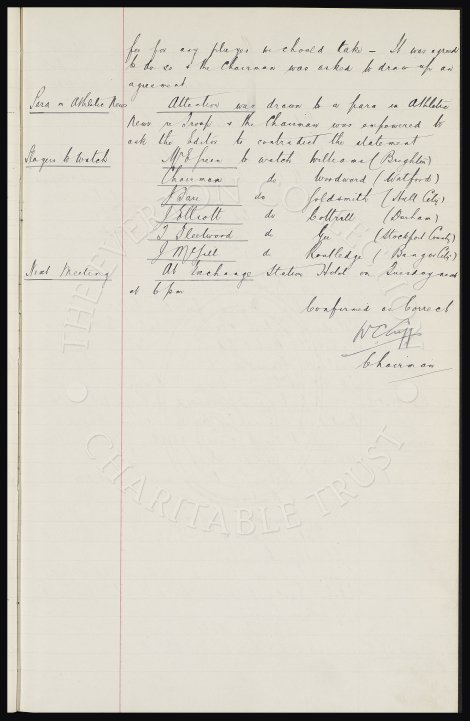 fee for any player we should take — It was agreed
to do so & the Chairman was asked to draw up an
agreement
Para in Athletic News Attention was drawn to a para in Athletic
News re Troup & the Chairman was empowered to
ask the Editor to contradict the statement
Players to Watch Mr E Green to watch Williams (Brighton)
Chairman do Woodward (Watford)
do Goldsmith (Hull City)
J Elliott do Cottrell (Durham)
T Fleetwood do Gee (Stockport County)
J do Routledge (Bangor City)
Next Meeting At Exchange Station Hotel on Tuesday next
at 6 pm
Confirmed as Correct
W C Cuff
Chairman
THE EVERTON COLLECTION
CHARITABLE TRUST